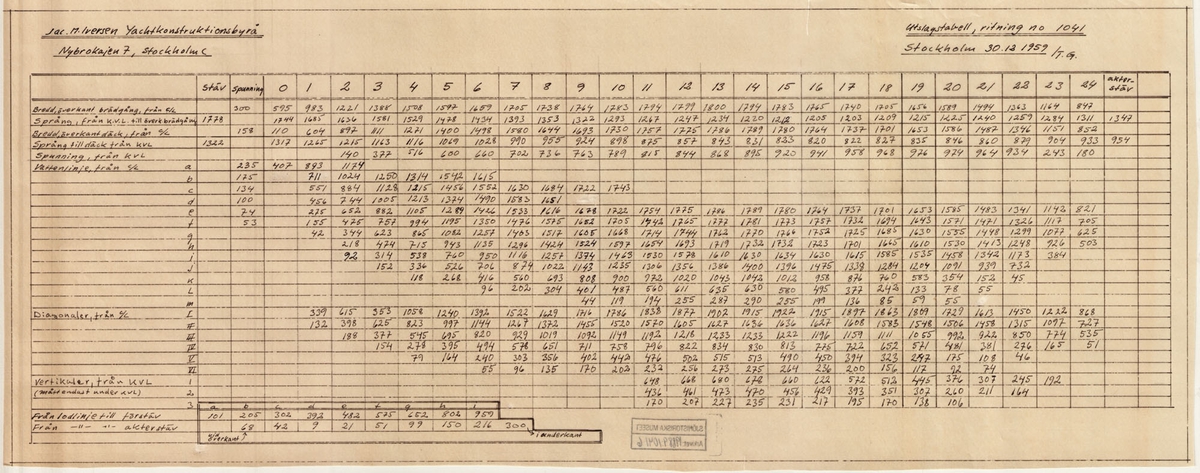 Jac. M. Iversen Yachtkonstruktionsbyrå
Nybrokajen 7, Stockholm C
Utslagstabell, ritning no 1041
Stockholm 30.12 1959 /T.G.
Stäv Spunning 0 1 2 3 4 5 6 7 8 9 10 11 12 13 14 15 16 17 18 19 20 21 22 23 24 akter-stäv
Bredd, överkant brädgång, från C/L 300 595 983 1221 1388 1508 1597 1659 1705 1738 1764 1783 1794 1799 1800 1794 1783 1765 1740 1705 1656 1589 1494 1363 1164 847
Språng, från K.V.L. till överk brädgång 1778 1744 1685 1636 1581 1529 1478 1434 1393 1353 1322 1293 1267 1247 1234 1220 1212 1205 1203 1209 1215 1225 1240 1259 1284 1311 1347
Bredd, överkant däck, från C/L 158 110 604 897 1111 1271 1400 1498 1580 1644 1693 1730 1757 1775 1786 1789 1780 1764 1737 1701 1653 1586 1487 1346 1151 852
Språng till däck från KVL 1322 1317 1265 1215 1163 1116 1069 1028 990 955 924 898 875 857 843 831 823 820 822 827 835 846 860 879 904 933 954
Spunning, från KVL 140 377 516 600 660 702 736 763 789 815 844 868 895 920 941 958 968 976 974 964 934 243 180
Vattenlinje, från C/L a 235 407 893 1174
b 175 711 1024 1250 1314 1542 1615
c 134 551 884 1128 1215 1456 1552 1630 1684 1722 1743
d 100 456 744 1005 1213 1374 1490 1583 1651
e 74 275 652 882 1105 1289 1426 1533 1616 1678 1722 1754 1775 1786 1789 1780 1764 1737 1701 1653 1585 1483 1341 1142 821
f 53 155 475 757 994 1195 1350 1476 1575 1652 1705 1742 1765 1777 1781 1773 1757 1732 1694 1643 1571 1471 1326 1117 705
g 42 344 623 865 1082 1257 1403 1517 1605 1668 1714 1744 1762 1770 1766 1752 1725 1685 1630 1555 1448 1299 1077 625
h 218 474 715 943 1135 1296 1424 1524 1597 1654 1693 1719 1732 1732 1723 1701 1665 1610 1530 1413 1248 926 503
i 92 314 538 760 950 1116 1257 1374 1463 1530 1578 1610 1630 1634 1630 1615 1585 1535 1458 1342 1173 384
j 152 336 526 706 874 1022 1143 1235 1306 1356 1386 1400 1396 1475 1339 1284 1204 1091 939 732
k 118 268 416 560 693 808 900 972 1020 1043 1042 1012 958 876 760 583 354 152 45
L 96 202 304 401 487 560 611 635 630 580 495 377 242 133 78 55
m 44 119 194 255 287 290 255 199 136 85 59 55
Diagonaler, från C/L I 339 615 353 1058 1240 1392 1522 1629 1716 1786 1838 1877 1902 1915 1922 1915 1897 1863 1809 1729 1613 1450 1222 868
II 132 398 625 823 997 1144 1267 1372 1455 1520 1570 1605 1627 1636 1636 1627 1608 1583 1548 1506 1458 1315 1097 727
III 188 377 545 695 820 929 1019 1092 1149 1192 1218 1233 1233 1222 1196 1159 1111 1055 992 922 850 774 535
IV 154 278 395 494 578 651 711 758 796 822 834 830 813 775 722 652 571 481 381 276 165 51
V 79 164 240 303 356 402 442 476 502 515 513 490 450 394 323 247 175 108 46
VI 55 96 135 170 202 232 256 273 275 264 236 200 156 117 92 74
Vertikaler, från KVL 1 648 668 680 678 660 622 572 512 445 376 307 245 192
(mått endast under KVL) 2 436 461 473 470 456 429 393 351 307 260 211 164
3 170 207 227 235 231 217 195 170 138 106
a b c d e f g h i
Från lodlinje till förstäv 101 205 302 392 482 575 652 802 959
Från —"— —"— akterstäv 68 42 9 21 51 99 150 216 300
överkant i underkant
SJÖHISTORISKA MUSEET